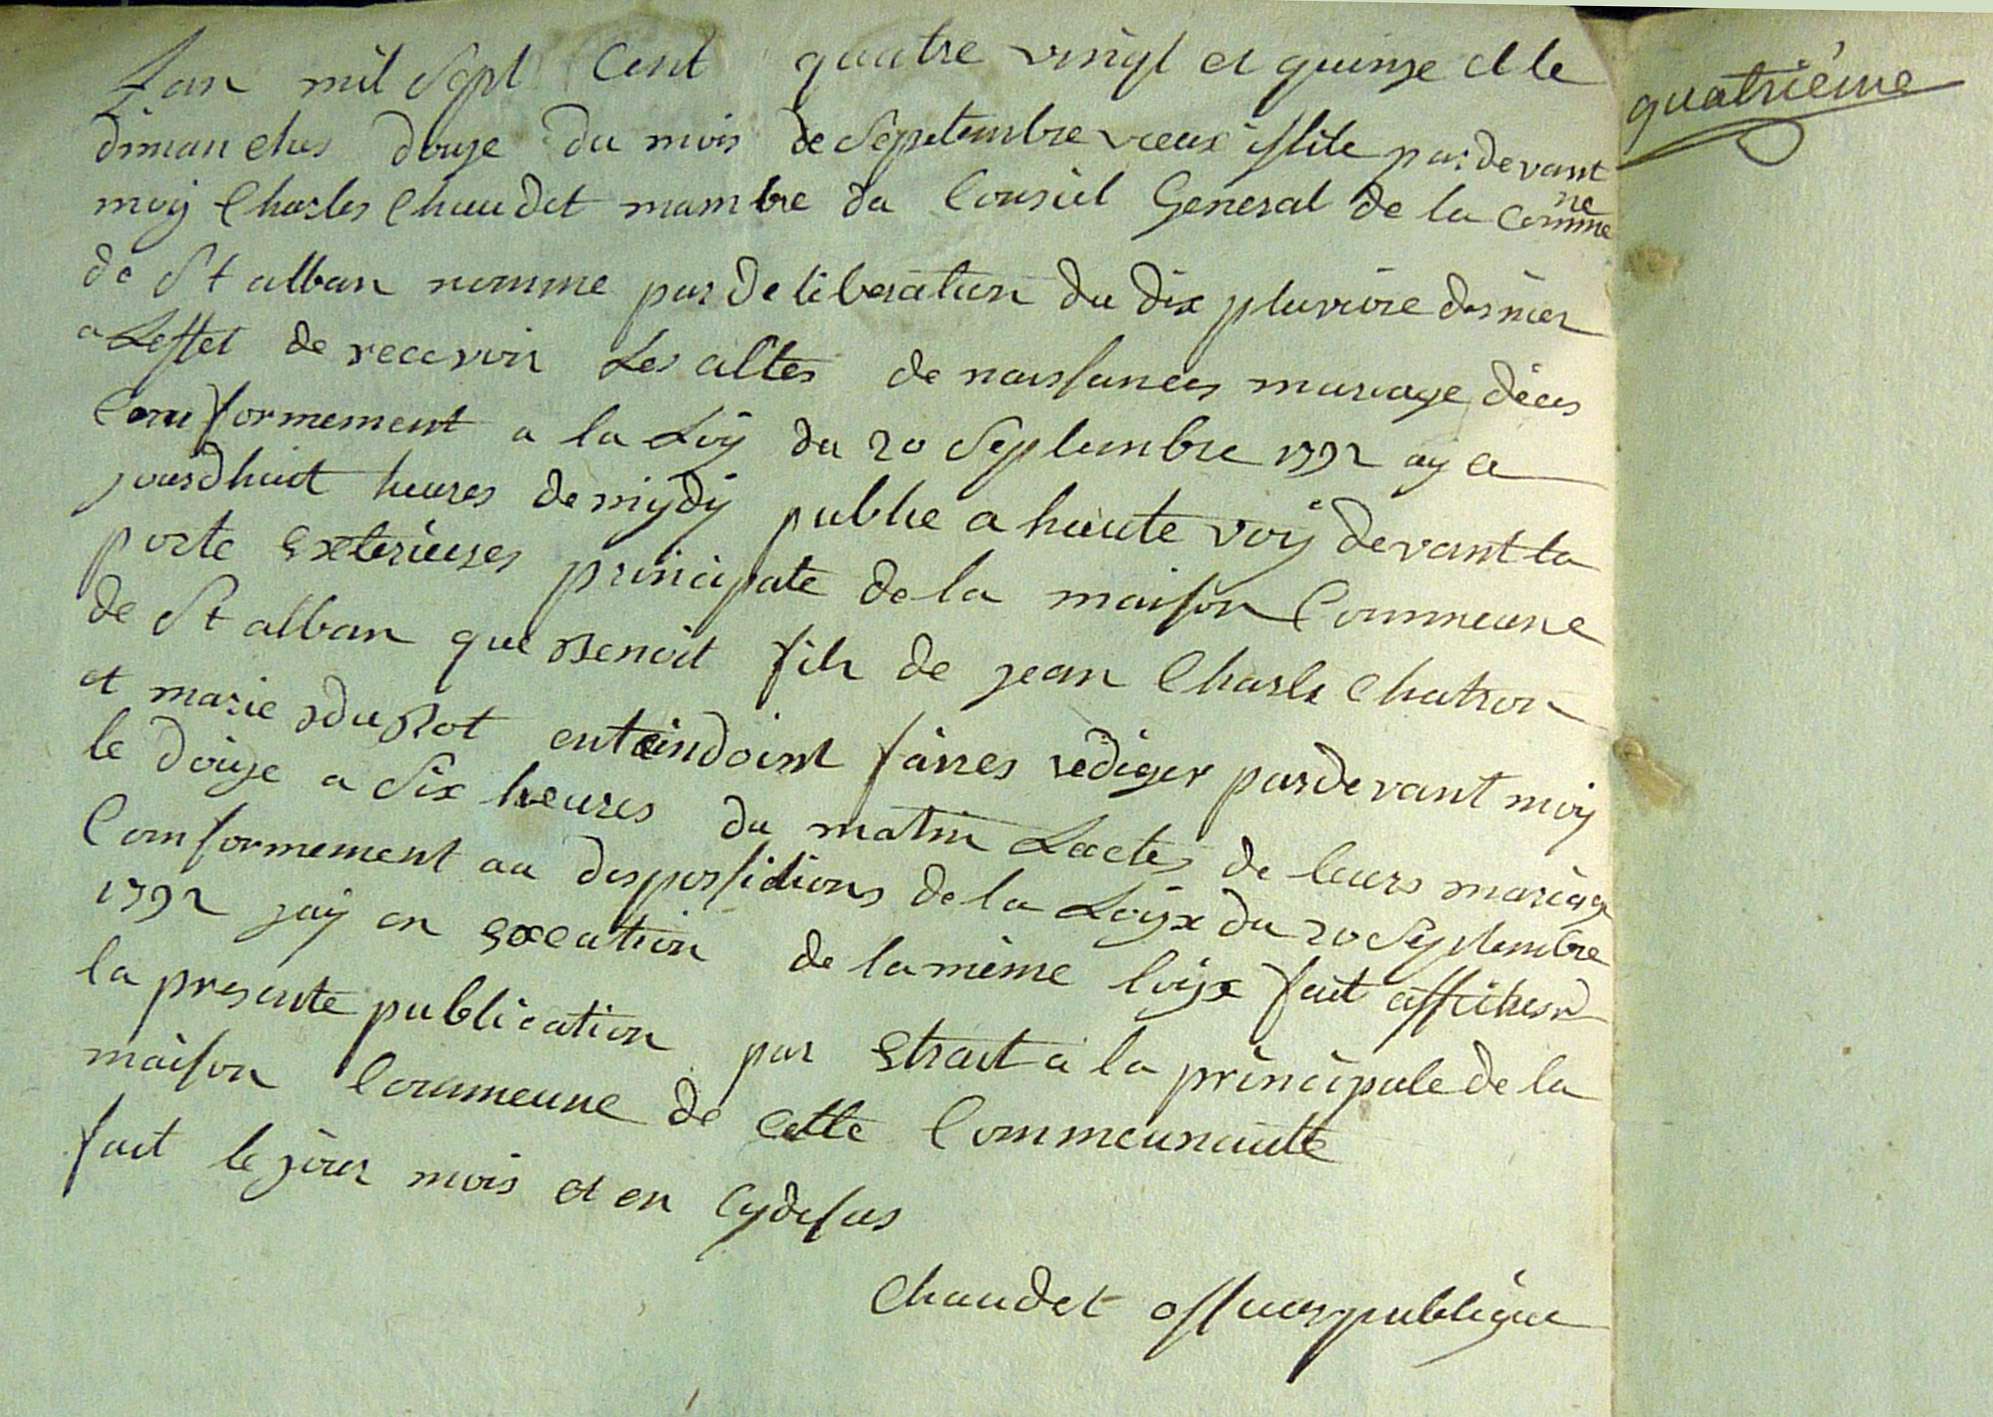 Lan mil sept Cent quatre vingt et quinze et le
quatrième
dimanches douze du mois de Septembre vieux stile pardevant
moy Charles Chaudet mambre du Consiel General de la Comme ne
de St alban nomme par deliberation du dix pluviore dernier
a Leffet de recevoir Les actes de naissances mariage déces
Conformement a la Loy du 20 Septembre 1792 ay a
jourdhuit heures de mydy publie a haute voy devant la
porte exterieures principale de la maison Commeune
de St alban que Benoit fils de jean Charles Chatron
et marie entaindoint faires rediger pardevant moy
le douze a Six heures du matin Lactes de leurs mariage
Comformement au despossidions de la Loyx du 20 Septembre
1792 jay en execution de la même loyx fait afficher
la presente publication par Etrait a la principale de la
maison Commeune de Cette Commeunaute
fait le jour mois et en Cydesus
Chaudet officier publique